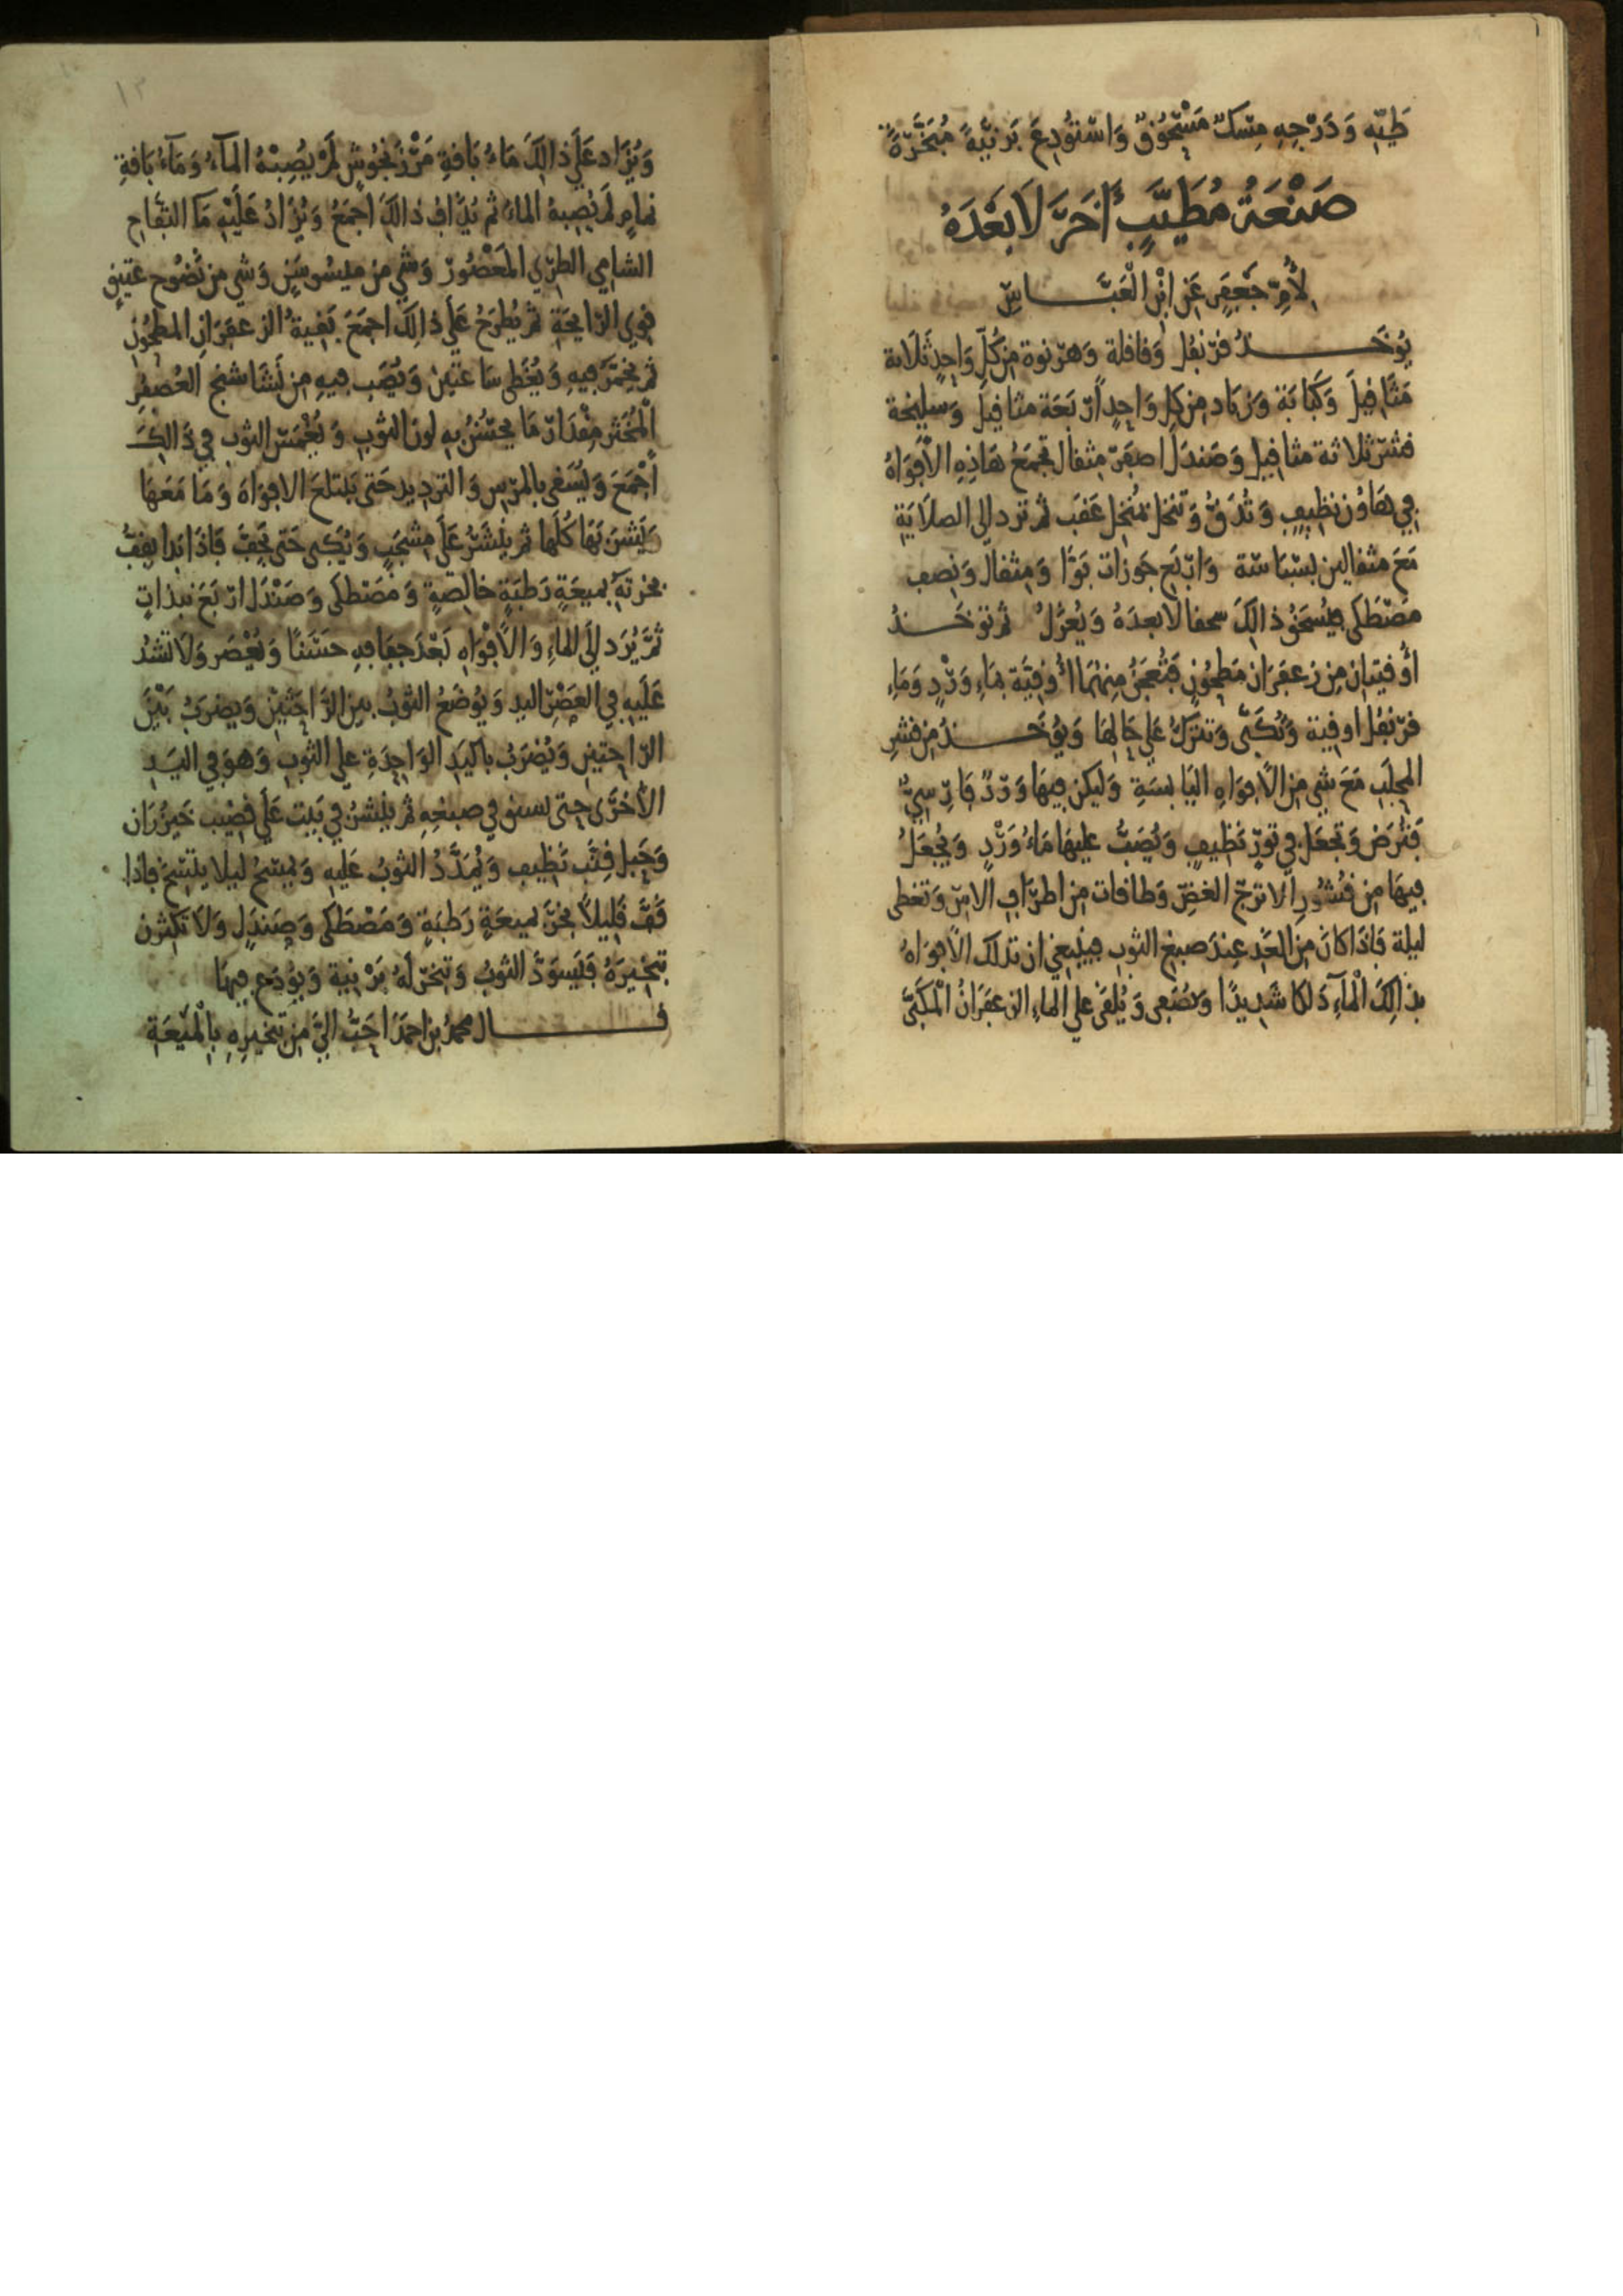 طيّه وَدَرْجِهِ مِسْكٌ مَسْحُوْقٌ وَاسْتُوْدِعَ بَرْنِيَّةً مُبَخَّرَةً
صَنْعَةُ مُطَيَّبٍ أَخَرَ لَا بَعْدَهُ
لِأُمِّ جَعْفَرٍ عَنِ ابْنِ الْعَبَّاسِ
يُوخَذُ قرنفل وَقاقلة وَهرنوة مِن كُلِّ وَاحِدٍ ثَلَاثة
مَثَاقيلَ وَكَبَابَة وَزباد مِن كل وَاحِدٍ أربَعَة مثاقيلَ وَسليخة
قشر ثلاثة مثاقيل وَصَندَل اصفر مثقال تجمَعُ هَاذِهِ الأفوَاهُ
في هَاوُن نظيفٍ وَتُدَقُّ وَتنخل بمُنخل ثم ترد الى الصلَايَةِ
مَعَ مثقالين بسْبَاسَة وَاربَع جَوزات بَوَّا وَمثقال وَنصف
مَصْطَكى فيُسحَقُ ذالِكَ سحقا لا بعدَهُ وَيُعزَلُ ثم توخَذُ
أوقيتان مِن زعفَرَان مَطحُونٍ فتُعجَنُ مِنهُمَا أُوقِيَّة بمَاءِ وَرْدٍ وَمَاءِ
قرنفُل اوقية وَتُكَبَّى وَتترَكُ عَلى حَالِهَا وَيُوخَذُ مِن قشرِ
المحلَبِ مَعَ شي مِن الأفوَاهِ اليَابسَةِ وَليكن فيهَا وَرْدٌ فَارِسيٌّ
فَتُرَض وَتجعَل في تَورٍ نَظيفٍ وَيُصَبُّ عليهَا مَاءُ وَرْدٍ وَيُجعَلُ
فيهَا مِن قُشُورِ الاترجّ الغضّ وَطاقات مِن اطرَافِ الاس وَتغطى
ليلة فَاذَا كانَ مِن الغَدِ عِندَ صبغ الثوب فينبغي ان تدلك الأفوَاهُ
بذالِكَ الْمَآءِ دَلكا شَدِيدًا وَيصُفى وَيُلقى على الماءِ الزعفَرَانُ الْمُكَبَّى
وَيُزَاد عَلى ذالِكَ مَاءُ بَاقةِ مَرْزنجُوشٍ لَمْ يُصِبْهُ المآءُ وَمَآءُ بَاقةِ
نمامٍ لَمْ يُصِبهُ الماءُ ثم يُدَاف ذالِكَ اجمَعُ وَيُزَادُ عَلَيْهِ مَا التفَاح
الشامِي الطرِي المَعْصُور وَشي من ميسُوسَنٍ وَشي مِن نَضُوحٍ عَتِيقٍ
قوي الرايحَةِ ثم يُطرَحُ عَلى ذالِكَ اجمَعَ بَقيةُ الزعفَرَانِ المطحُونِ
ثم يخمَّرَ فيهِ وَيُغَطى سَاعَتينِ وَيُصَب فيهِ مِن نَشَاستج العُصفُرِ
الْمُخَثرِ مِقْدَار مَا يحسُنُ بِهِ لون الثوبِ وَيُغمَسُ الثوب في ذَالِكَ
أجْمَعَ وَيُسقى بالمرسِ وَالترديد حَتى يَبتلعَ الافوَاهَ وَمَا مَعَهَا
يَتَشرَّبهَا كُلهَا ثم يُنشَرُ عَلى مشجَبٍ وَيُكَبى حَتى يَجِفّ فَاذَا بَدا يقِفُّ
بخرتَهُ بميعَةٍ رَطبَةٍ خالِصَةٍ وَمَصْطكى وَصَندَل اربَعَ نبذاتٍ
ثُمَّ يُرَد إلى الماءِ وَالأفوَاهِ بَعْدَ جفافِهِ حَسَنًا وَيُعْصَر وَلَا تَشُدُ
عَلَيهِ في العَصْرِ اليد وَيُوضَعُ الثوبُ بين الرَّاحَتَيْنِ وَيضرَبُ بَيْنَ
الرَّاحتينِ وَيُضرَبُ باليَدِ الوَاحِدَةِ على الثوبِ وَهوَ في اليَدِ
الأُخْرَى حتى يستوي في صبغِهِ ثم يُنشرُ في بَيت عَلى قضيب خَيزُرَان
وَحَبل قِنَّب نَظيف وَيُمَدَّدُ الثوبُ عَليهِ وَيمسَحُ ليلا يتسخ فاذا
قَفَّ قَلِيلاً بُخِّرَ بميعَةٍ رَطبَةٍ وَمَصْطَكى وَصَندَلٍ وَلَا تَكثرن
تبخيرَهُ فَيَسوَدَّ الثوبُ وَتبخرُ لَهُ بَرْنِيَة وَيُودَع فيهَا
قال محمدُ بن احمَدَ احَبُّ اليَّ مِن تبخيرِهِ بِالْمَيْعَةِ